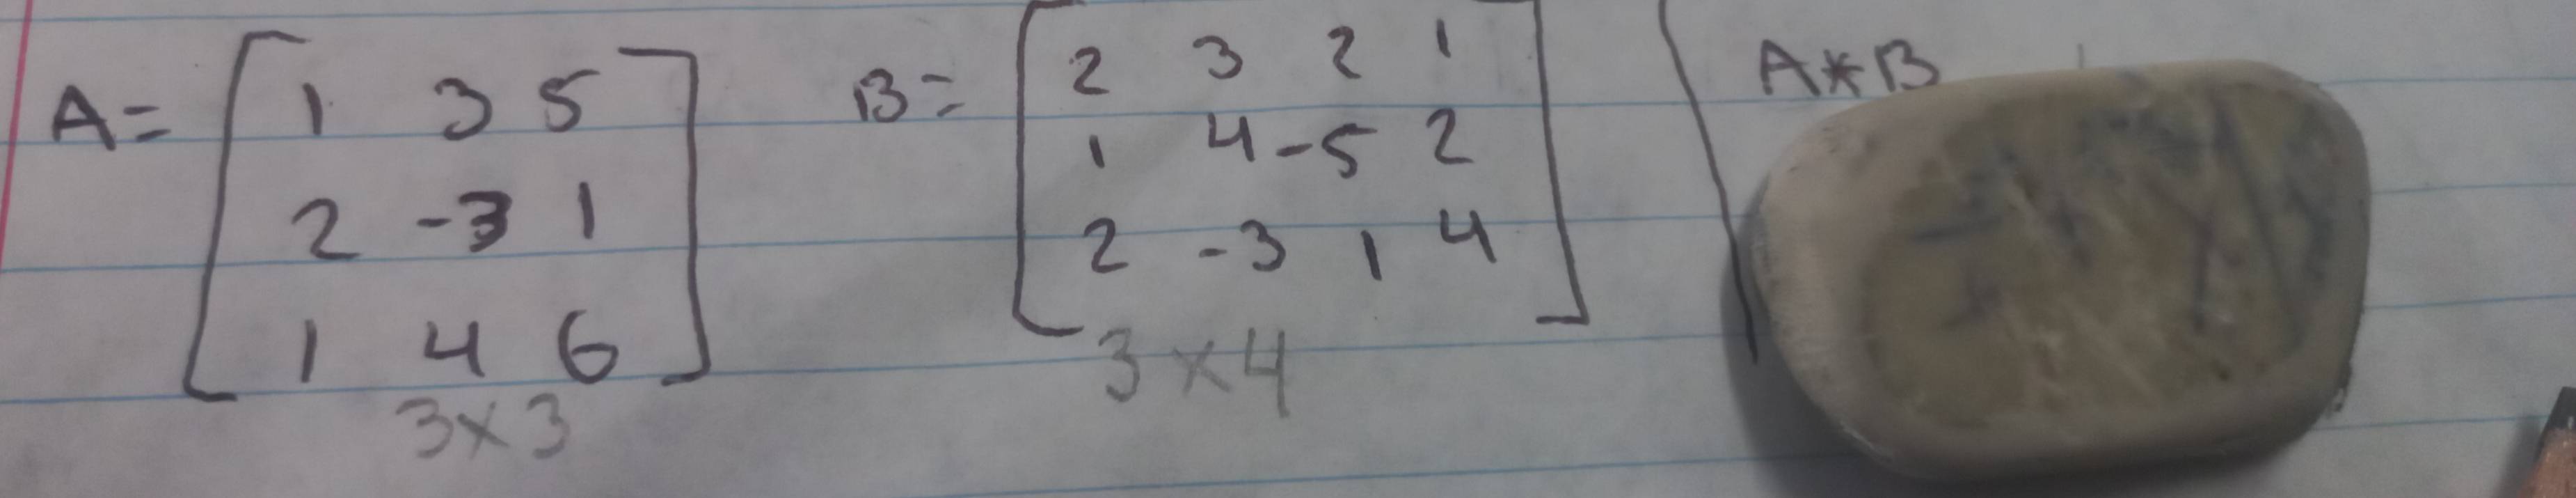 A= [ 1 3 5
2 -3 1
1 4 6 ]
3x3
B= [ 2 3 2 1
1 4 -5 2
2 -3 1 4 ]
3x4
A*B